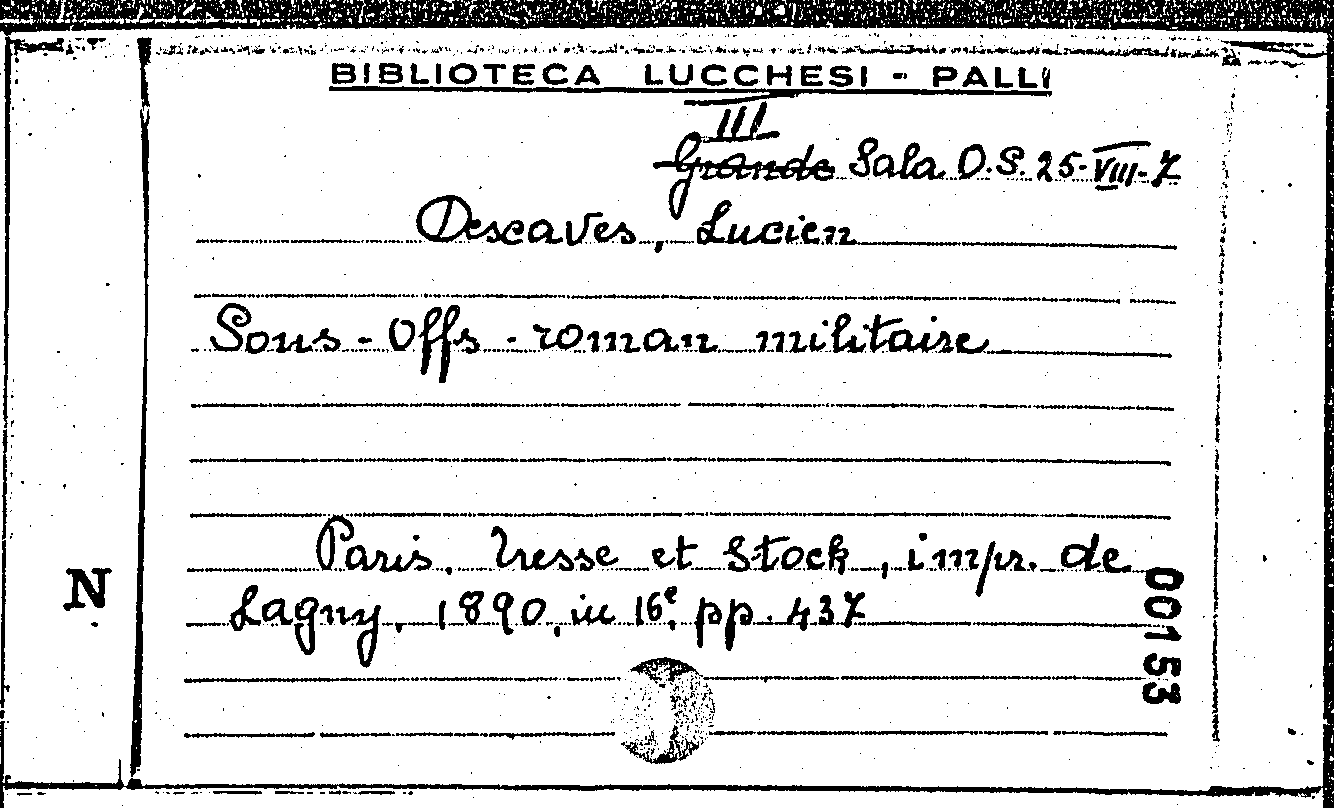 BIBLIOTECA LUCCHESI - PALLI
III
Grande Sala O.S. 25-VIII-7
Descaves, Lucien
Sous-Offs - roman militaire
Paris, Tresse et Stock, impr. de
Lagny, 1890, in 16e, pp. 437
N
00153